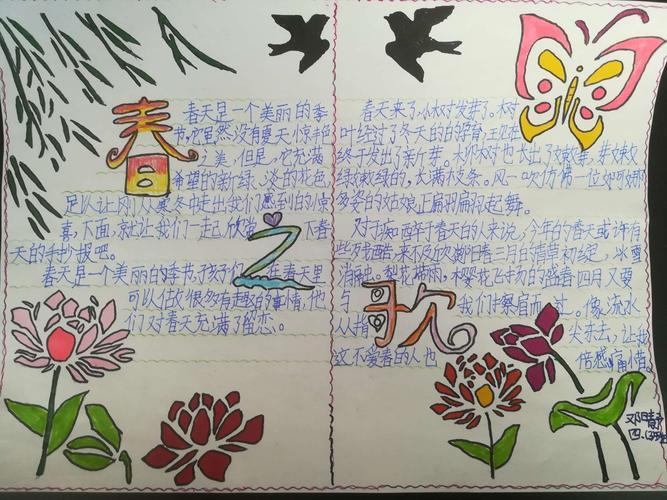 春之歌
春天是一个美丽的季
节。它虽然没有夏天惊半色
之美，但是，它充满
希望的新绿、淡淡的花色
足以让刚从寒冬中走出我们感到的惊
喜，下面，就让我们一起欣赏一下春
天的手抄报吧。
春天是一个美丽的季节孩子们在春天里
可以做很多有趣的事情，他
们对春天充满了留恋。
春天来了，小树发芽了。树
叶经过了冬天的
终于发出了新芽。柳树也长出了嫩芽，芽嫩
绿嫩绿的，长满大支条。风一吹仿佛一位婀娜
多姿的姑娘正翩翩起舞。
对于知西卒于春天的人来说，今年的春天或许有
些残酷，来不及欣 阳春三月的青草初绽，冰雪
消融。梨花 雨。樱花飞扬的盛春四月又要
与我们擦肩而过。像流水
从指尖亦去，让我
这不爱春的人也倍感痛惜。
邓晴
四.